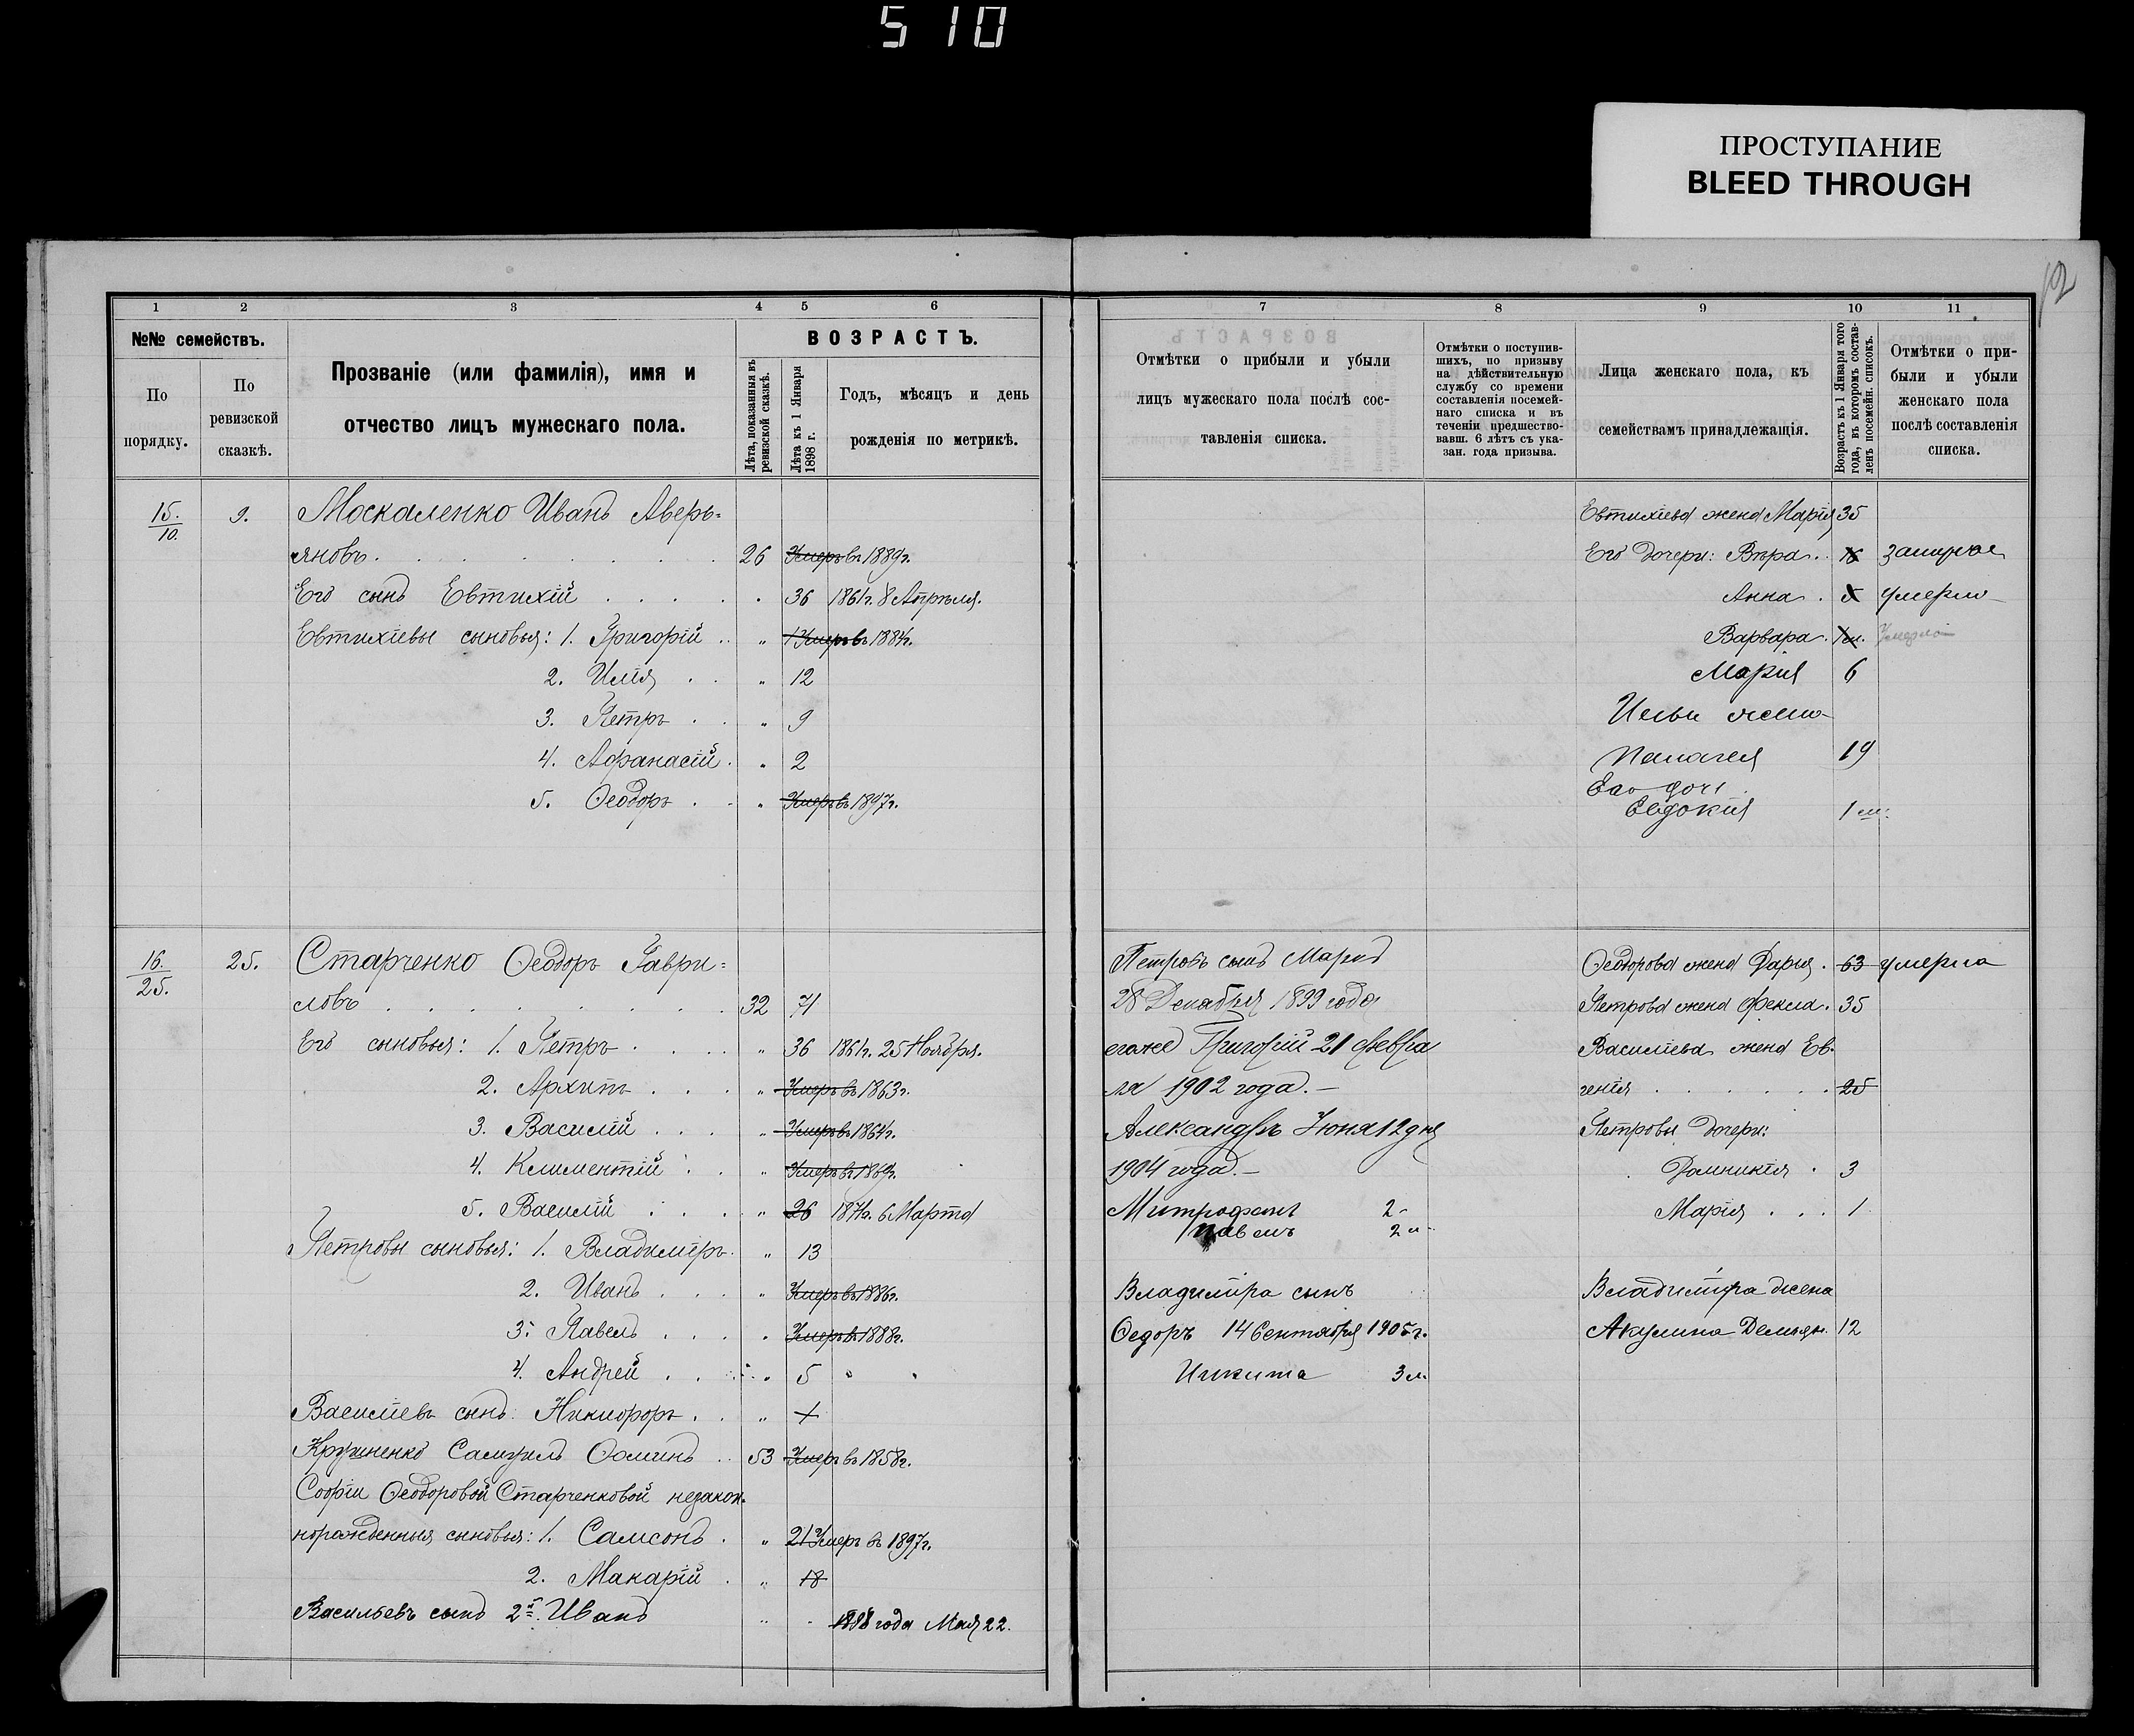 510
ПРОСТУПАНИЕ
BLEED THROUGH
12
1 2 3 4 5 6
№№ семействъ.
По порядку.
По ревизской сказкѣ.
Прозваніе (или фамилія), имя и
отчество лицъ мужескаго пола.
ВОЗРАСТЪ.
Лѣта, показанныя въ
ревизской сказкѣ.
Лѣта къ 1 Января
1898 г.
Годъ, мѣсяцъ и день
рожденія по метрикѣ.
15./10. 9. Москаленко Иванъ Аверь=
яновъ. 26 Умеръ въ 1889г.
Его сынъ Евтихій . . . . . 36 1861г. 8 Апрѣля.
Евтихіевы сыновья: 1. Григорій . . „ Умеръ въ 1884г.
2. Илія . . „ 12
3. Петръ . . „ 9
4. Афанасій . „ 2
5. Ѳеодоръ . . „ Умеръ въ 1897г.
16./25. 25. Старченко Ѳеодоръ Гаври=
ловъ . . . . . . . . . 32 71
Его сыновья: 1. Петръ . . . . „ 36 1861г. 25 Ноября.
2. Архипъ . . . „ Умеръ въ 1863г.
3. Василій . . . „ Умеръ въ 1864г.
4. Климентій . . „ Умеръ въ 1869г.
5. Василій . . . „ 26 1871г. 6 Марта
Петровы сыновья: 1. Владиміръ. „ 13
2. Иванъ . . . „ Умеръ въ 1886г.
3. Павелъ . . . . „ Умеръ въ 1888г.
4. Андрей . . . „ 5 „ „
Васильевъ сынъ Никифоръ . . „
Самуилъ Ѳоминъ . . 53 Умеръ въ 1858г.
Софіи Ѳеодоровой Старченковой незакон=
норожденныя сыновья: 1. Самсонъ . „ 21 Умеръ въ 1897г.
2. Макарій . „ 18
Васильевъ сынъ 2й. Иванъ „ . года Мая 22.
7 8 9 10 11
Отмѣтки о прибыли и убыли
лицъ мужескаго пола послѣ сос-
тавленія списка.
Отмѣтки о поступив-
шихъ, по призыву
на дѣйствительную
службу со времени
составленія посемей-
наго списка и въ
теченіи предшество-
вавш. 6 лѣтъ съ ука-
зан. года призыва.
Лица женскаго пола, къ
семействамъ принадлежащія.
Возрастъ къ 1 Января того
года, въ которомъ состав-
ленъ посемейн. списокъ.
Отмѣтки о при-
были и убыли
женскаго пола
послѣ составленія
списка.
Евтихіева жена Марія 35
Его дочери: Вѣра . . замужем
Анна . умерла
Варвара . 1 м. Умерла
Марія 6
Ильи жена
Палагея 19
Его доч.
Евдокия 1 м.
Петровъ сынъ Марко
28 Декабря 1899 года
егоже Григорій 21 Февра
ля 1902 года. –
Александръ Июня 12 дня
1904 года. –
Митрофанъ 2
Павелъ 2 м
Владиміра сынъ
Ѳедоръ 14 Сентября 1905г.
Никита 3 м.
Ѳеодорова жена Дарья . 63 умерла
Петрова жена Фекла . 35
Василіева жена Ев.
генія . . . . . . 25
Петровы дочери:
Домникія . 3
Марія . . . 1
Владиміра жена
Акулина Демьян. 12